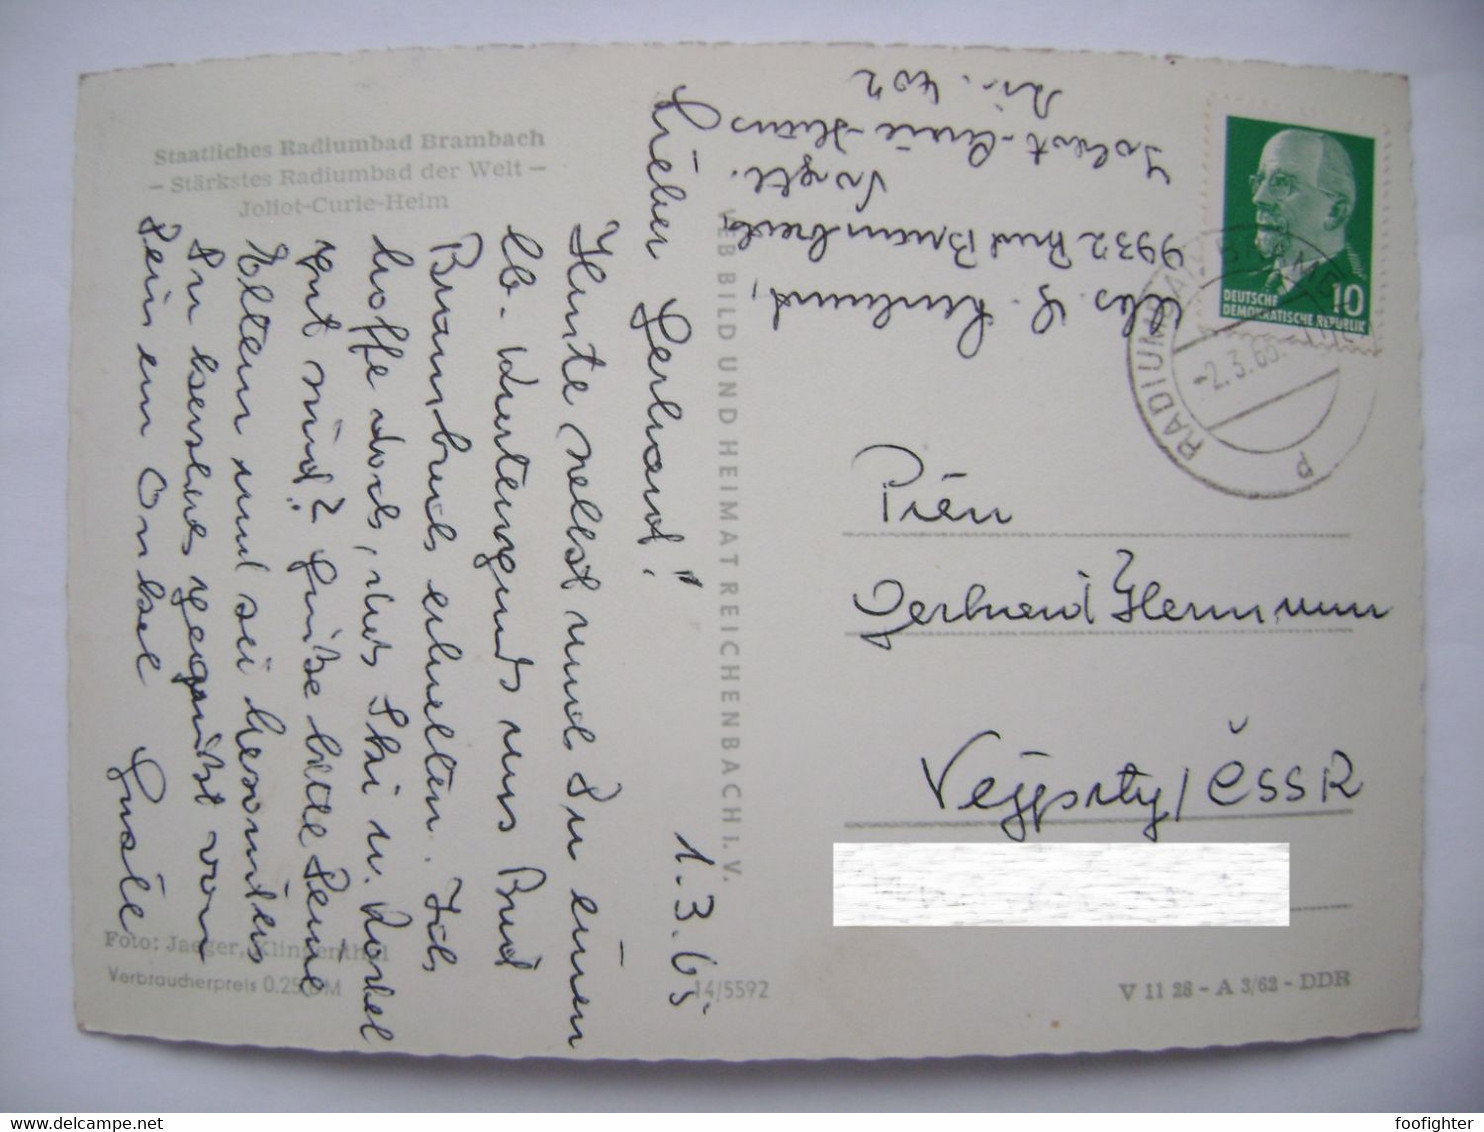 Staatliches Radiumbad Brambach
- Stärkstes Radiumbad der Welt -
Joliot-Curie-Heim
1.3.65
Lieber Gerhard!
Heute sollst mal Du einen
lb. Kartengruß aus Bad
Brambach erhalten. Ich
hoffe doch, daß Ski u. Rodel
gut sind? Grüße bitte Deine
Eltern und sei besonders
Du herzlich gegrüßt von
Deinem Onkel Gustl
Foto: Jaeger, Klingenthal
Verbraucherpreis 0.25 DM
VEB BILD UND HEIMAT REICHENBACH I. V.
14/5592
Abs. G.
9932 Bad Brambach
Vogtl.
Joliot-Curie-Haus
Zi. 402
DEUTSCHE
DEMOKRATISCHE REPUBLIK
10
RADIUMBAD BRAMBACH
-2.3.65
Gerhard Hermann
Vejprty / ČSSR
V 11 28 - A 3/62 - DDR
foofighter